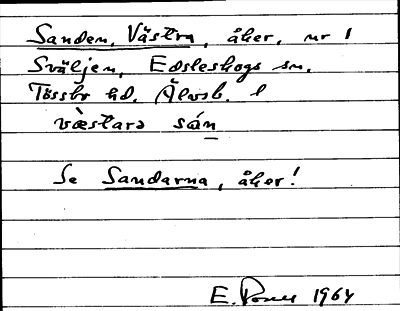 Sanden, Västra, åker, nr 1
Sväljen, Edsleskogs sn.
Tössbo hd. Älvsb. l
væ̀stara sán
Se Sandarna, åker!
E. 1964